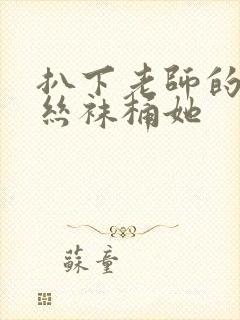 扒下老師的
絲袜桶她
蘇童